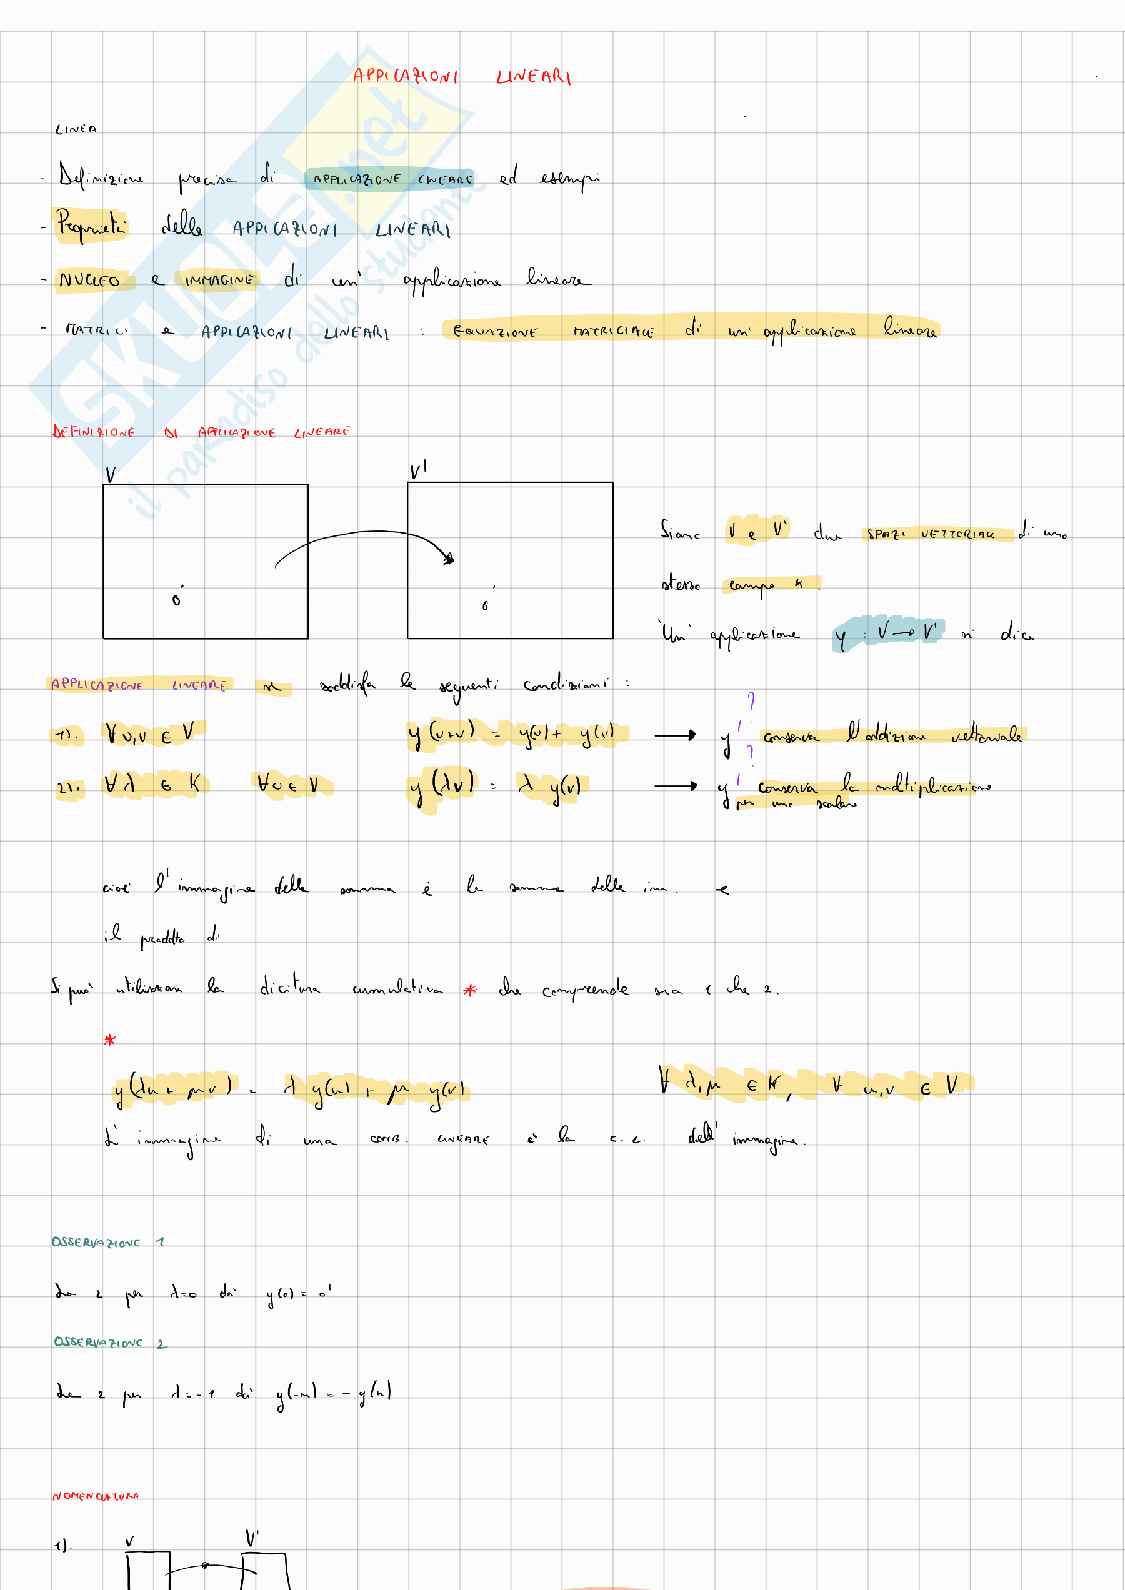 APPLICAZIONI LINEARI
LINEA
- Definizione precisa di APPLICAZIONE LINEARE ed esempi
- Proprietà delle APPLICAZIONI LINEARI
- NUCLEO e IMMAGINE di un' applicazione lineare
- MATRICI e APPLICAZIONI LINEARI : EQUAZIONE MATRICIALE di un' applicazione lineare
SKUOLA.net
il paradiso dello studente
DEFINIZIONE DI APPLICAZIONE LINEARE
V V'
0 0
Siano V e V' due SPAZI VETTORIALI di uno
stesso campo K
Un' applicazione y : V → V' si dice
APPLICAZIONE LINEARE se soddisfa le seguenti condizioni :
1). ∀ u,v ∈ V y (u+v) = y(u) + y(v) → y ? conserva l'addizione vettoriale
2). ∀ λ ∈ K ∀ v ∈ V y (λv) = λ y(v) → y ? conserva la moltiplicazione
per uno scalare
cioè l'immagine della somma è la somma delle imm. e
il prodotto di
Si può utilizzare la dicitura cumulativa * che comprende sia 1 che 2.
*
y(λu + μv) = λ y(u) + μ y(v) ∀ λ,μ ∈ K, ∀ u,v ∈ V
L' immagine di una COMB. LINEARE è la c.l. dell' immagine.
OSSERVAZIONE 1
La 2 per λ=0 dà y(0) = 0'
OSSERVAZIONE 2
La 2 per λ=-1 dà y(-u) = - y(u)
NOMENCLATURA
1). V V'